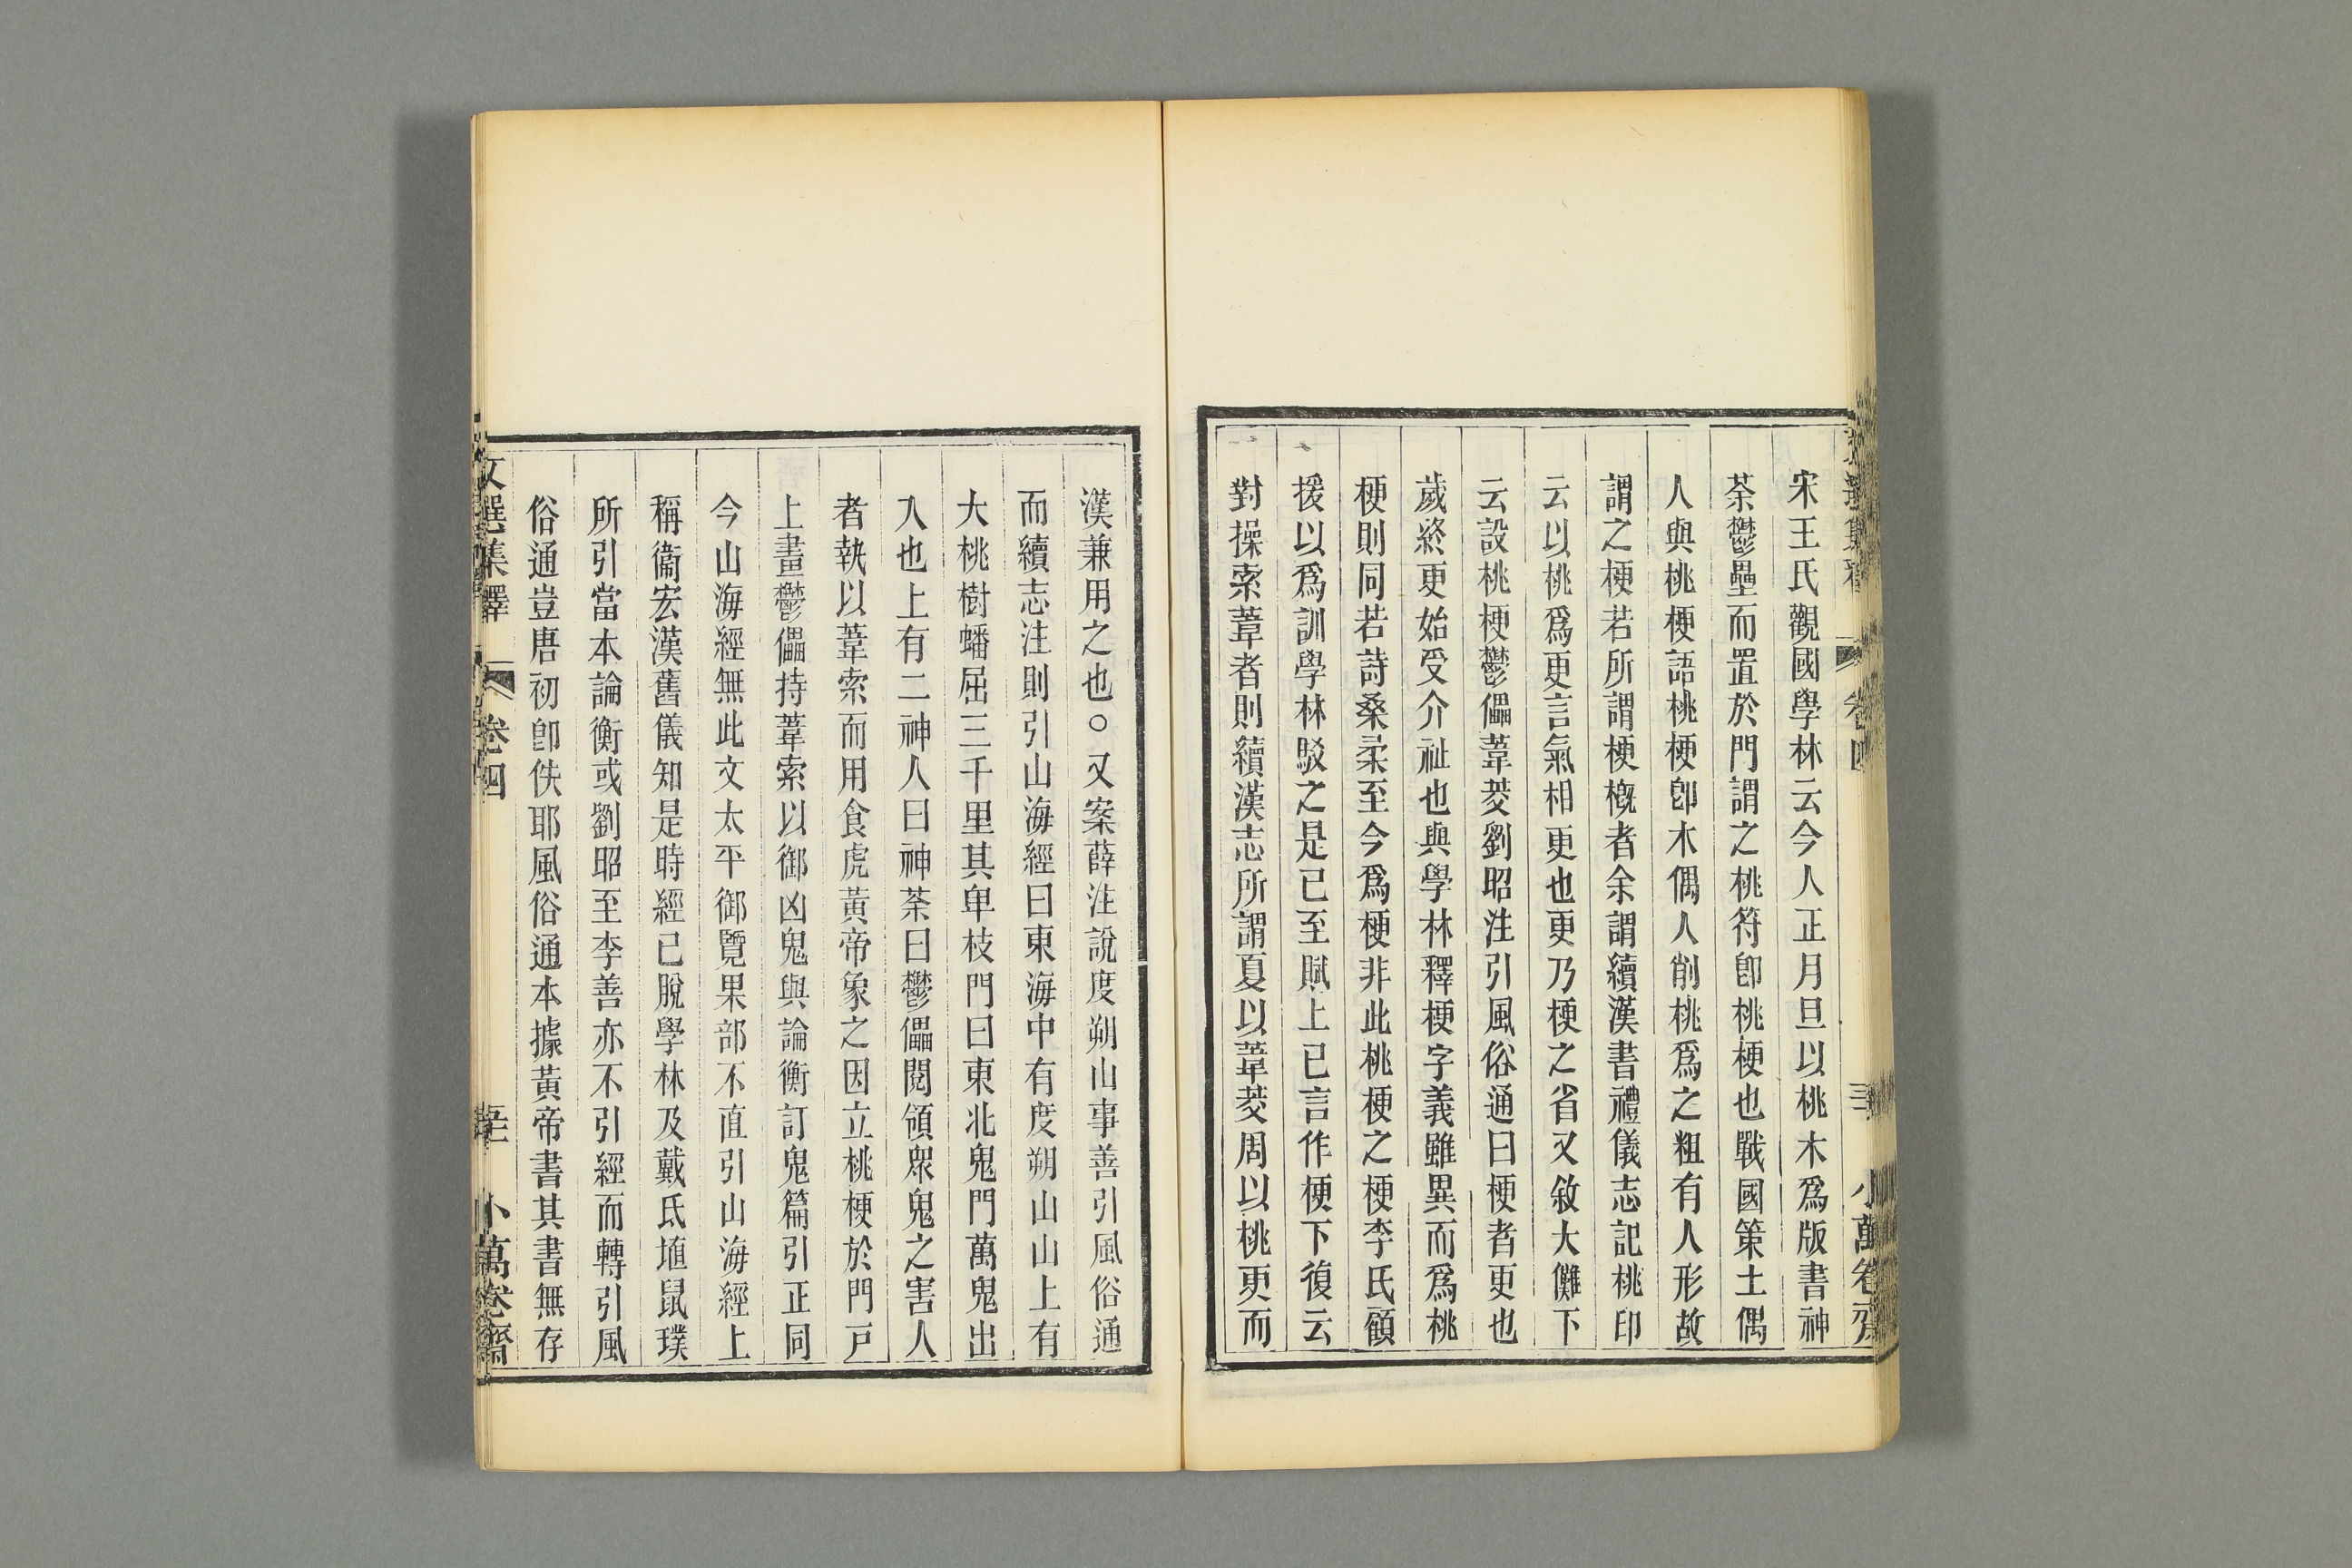 宋王氏觀國學林云今人正月旦以桃木爲版書神
荼鬱壘而置於門謂之桃符卽桃梗也戰國策土偶
人與桃梗語桃梗卽木偶人削桃爲之粗有人形故
謂之梗若所謂梗槪者余謂續漢書禮儀志記桃印
云以桃爲更言氣相更也更乃梗之省又敘大儺下
云設桃梗鬱儡葦茭劉昭注引風俗通曰梗者更也
歲終更始受介祉也與學林釋梗字義雖異而爲桃
梗則同若詩桑柔至今爲梗非此桃梗之梗李氏顧
援以爲訓學林駁之是已至賦上已言作梗下復云
對操索葦者則續漢志所謂夏以葦茭周以桃更而
漢兼用之也○又案薛注說度朔山事善引風俗通
而續志注則引山海經曰東海中有度朔山山上有
大桃樹蟠屈三千里其卑枝門曰東北鬼門萬鬼出
入也上有二神人曰神荼曰鬱儡閱領眾鬼之害人
者執以葦索而用食虎黃帝象之因立桃梗於門戶
上畫鬱儡持葦索以御凶鬼與論衡訂鬼篇引正同
今山海經無此文太平御覽果部不直引山海經上
稱衞宏漢舊儀知是時經已脫學林及戴氏埴鼠璞
所引當本論衡或劉昭至李善亦不引經而轉引風
俗通豈唐初卽佚耶風俗通本據黃帝書其書無存
文選集釋 卷四 小萬卷齋